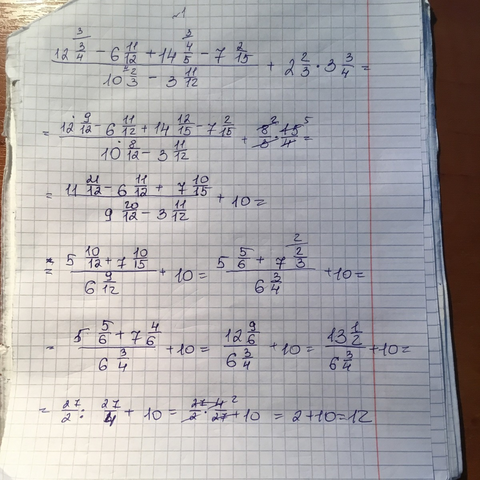 №1
(12 3/4 - 6 11/12 + 14 4/5 - 7 2/15) / (10 2/3 - 3 11/12) + 2 2/3 · 3 3/4 =
= (12 9/12 - 6 11/12 + 14 12/15 - 7 2/15) / (10 8/12 - 3 11/12) + 8/3 · 15/4 =
= (11 21/12 - 6 11/12 + 7 10/15) / (9 20/12 - 3 11/12) + 10 =
= (5 10/12 + 7 10/15) / (6 9/12) + 10 = (5 5/6 + 7 2/3) / (6 3/4) + 10 =
= (5 5/6 + 7 4/6) / (6 3/4) + 10 = (12 9/6) / (6 3/4) + 10 = (13 1/2) / (6 3/4) + 10 =
= 27/2 : 27/4 + 10 = 27/2 · 4/27 + 10 = 2 + 10 = 12